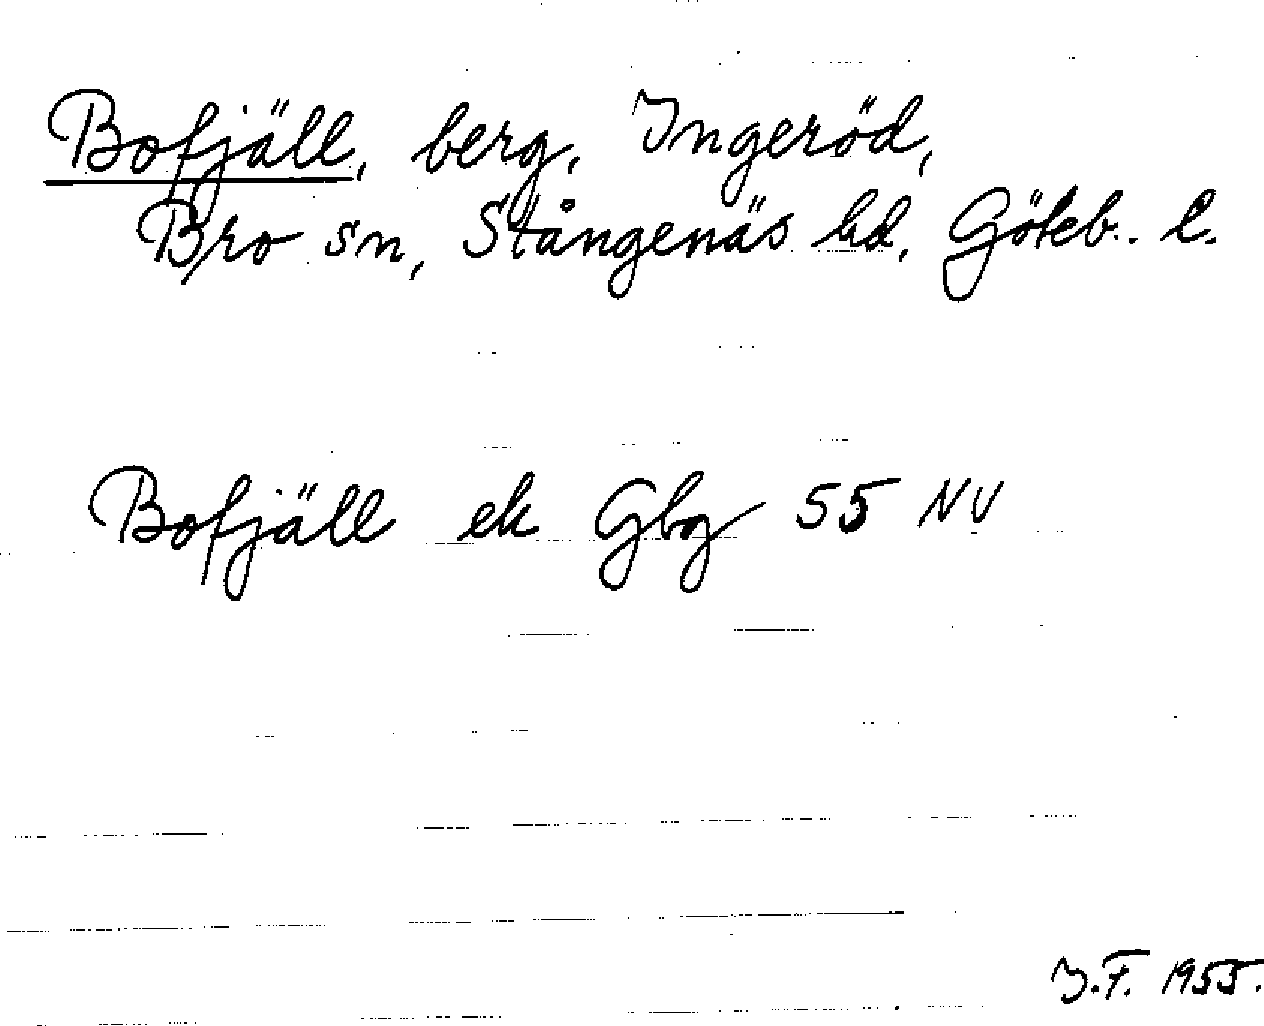 Bofjäll, berg, Ingeröd,
Bro sn, Stångenäs hd, Göteb. l.
Bofjäll ek Gbg 55 NV
I.F. 1955.